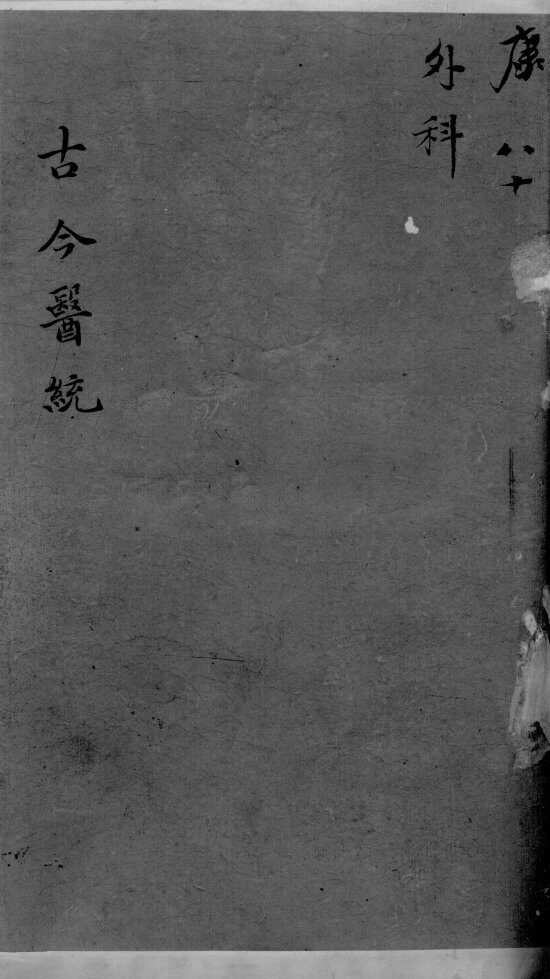 康 八十
外科
古今醫統